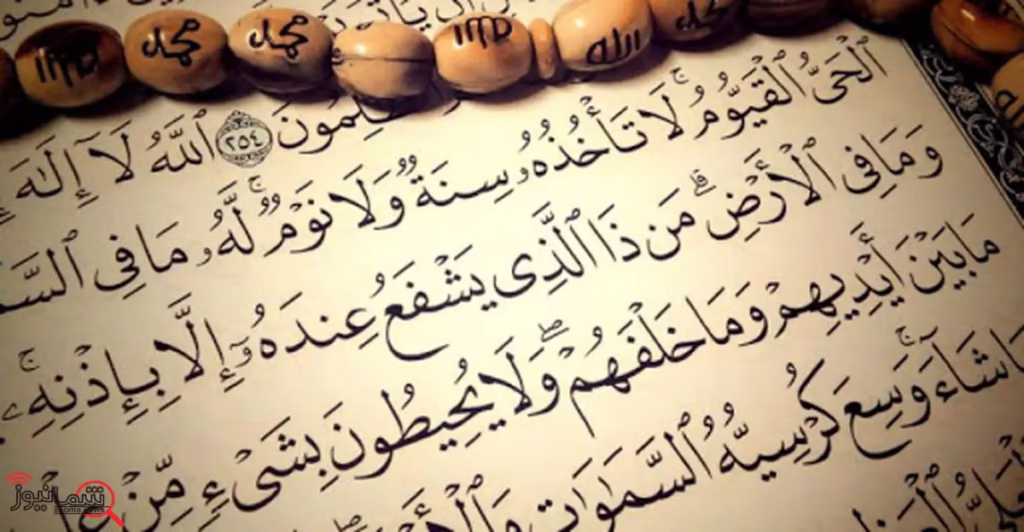 محمد
محمد
الله
ٱللَّهُ لَآ إِلَٰهَ
ٱلْحَىُّ ٱلْقَيُّومُ ۚ لَا تَأْخُذُهُۥ سِنَةٌ وَلَا نَوْمٌ ۚ لَّهُۥ مَا فِى ٱلسَّ
وَمَا فِى ٱلْأَرْضِ ۗ مَن ذَا ٱلَّذِى يَشْفَعُ عِندَهُۥٓ إِلَّا بِإِذْنِهِۦ ۚ
مَا بَيْنَ أَيْدِيهِمْ وَمَا خَلْفَهُمْ ۖ وَلَا يُحِيطُونَ بِشَىْءٍ مِّنْ
شَآءَ ۚ وَسِعَ كُرْسِيُّهُ ٱلسَّمَٰوَٰتِ
شمانیوز